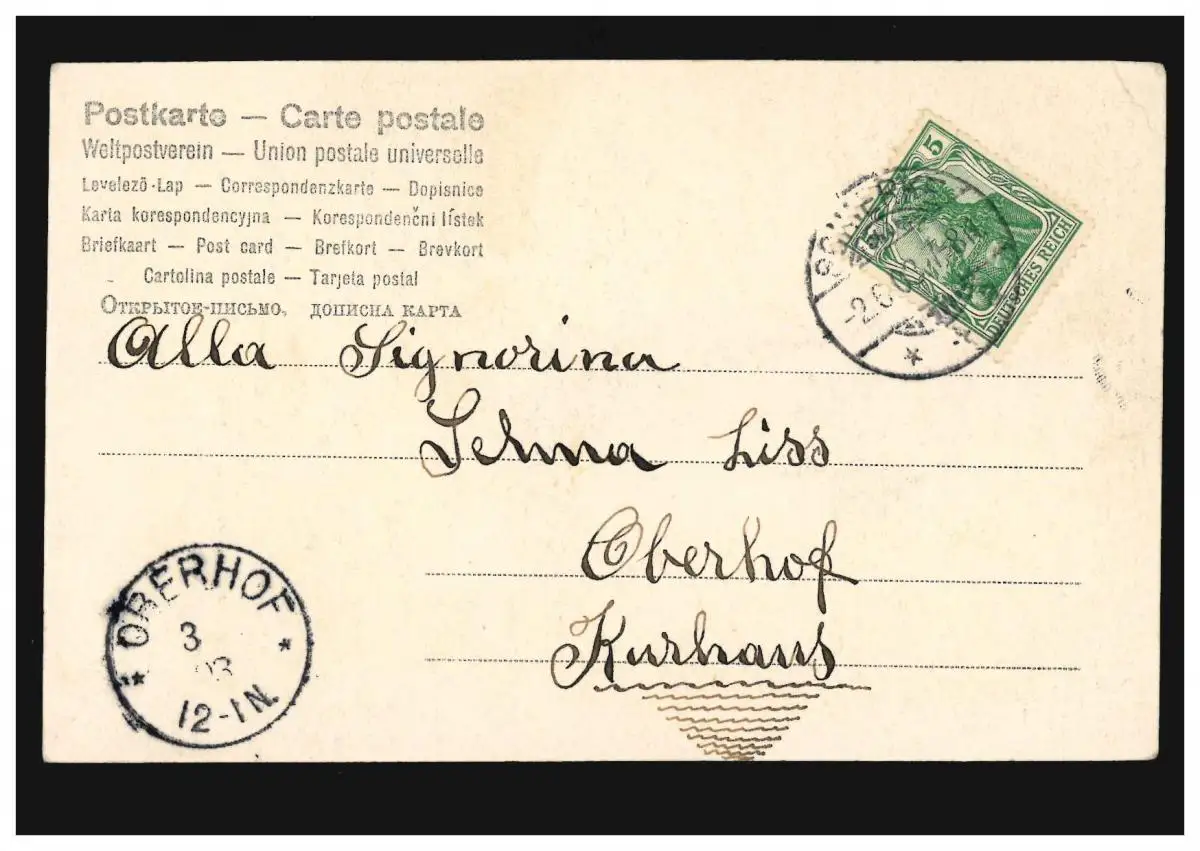 Postkarte — Carte postale
Weltpostverein — Union postale universelle
Levelező-Lap — Correspondenzkarte — Dopisnice
Karta korespondencyjna — Korespondenčni lístek
Briefkaart — Post card — Brefkort — Brevkort
Cartolina postale — Tarjeta postal
Открытое-письмо, дописна карта
5
DEUTSCHES REICH
Alla Signorina
Selma Liss
Oberhof
Kurhaus
* OBERHOF *
3
03
12-1N.